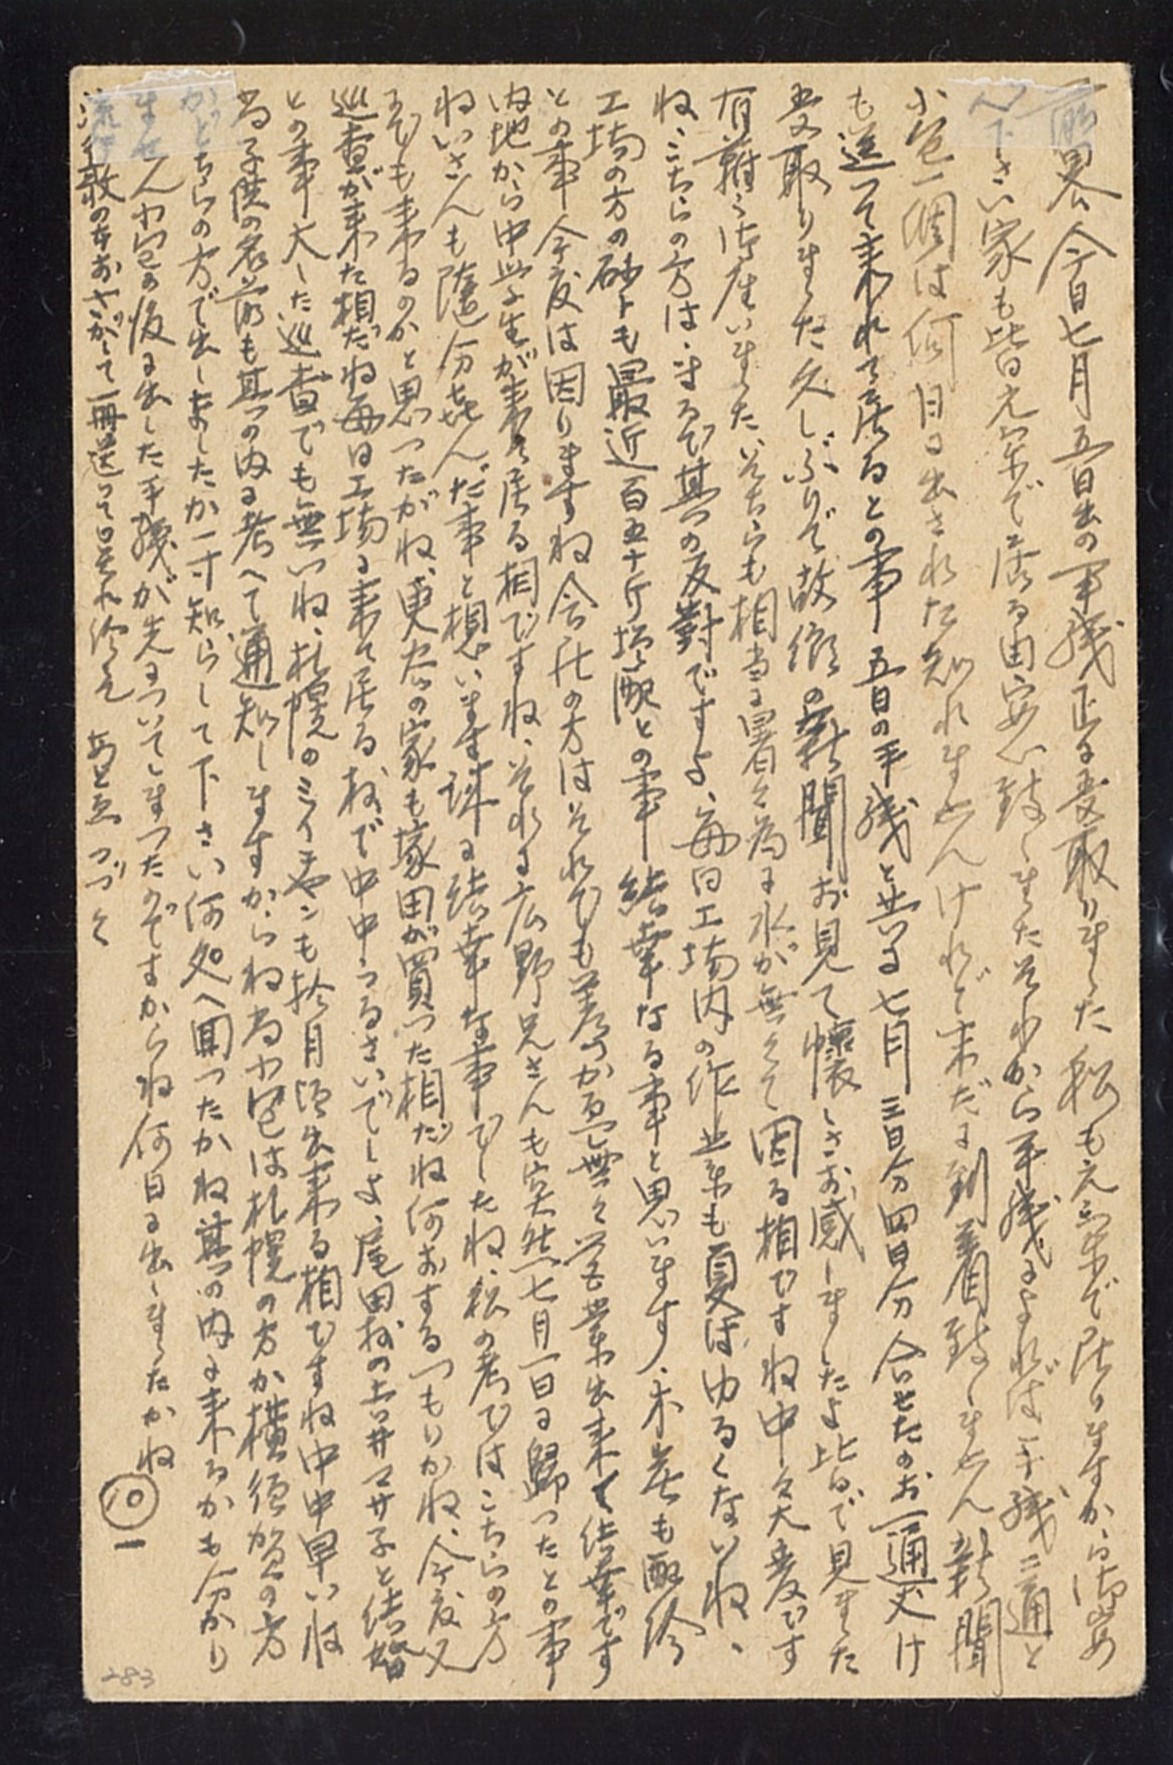 前畧今日七月五日出の手残正に受取りました私も元気で居りますから御安
心下さい家も皆元気で居る由安心致しましたそれから手残によれば手残二通と
小包一個は何日に出された知れませんけれど未だに到着致しません新聞
も送って来れて居るとの事五日の手残と共に七月三日分四日分合せたのお一通丈け
受取りました久しぶりで故郷の新聞お見て懐しさお感しましたよ皆で見ました
有難う御座いました、そちらも相当に暑く為に水が無くて困る相ですね中々大変です
ね、こちらの方は、まるで其の反對ですよ、毎日工場内の作業も夏はゆるくないね、
工場の方の砂トも最近百五十斤増配との事結華なる事と思います、米差も配給
との事今度は困りますね会社の方はそれでも差か無く営業出来て結華です
内地から中学生が来て居る相ですね、それに広野兄さんも突然七月一日に歸ったとの事
ねいさんも随分喜んだ事と想います球に結華な事でしたね、私の考ではこちらの方
えでも来るのかと思ったがね、東太の家も塚田が買った相だね何おするつもりかね、今度又
巡査が来た相だね毎日工場に来て居る、で中中うるさいでしよ、尾田の土井マサ子と結婚
との事大した巡査でも無いね、札幌のミイチヤンも拾月頃出来る相ですね中中早いね
尚子供の名前も其の内に考へて通知しますからね尚小包は札幌の方か横須賀の方
かどちらの方で出しましたか一寸知らして下さい何処へ聞ったかね其の内に来るかも分かり
ませんね包の後に出した手残が先についてしまったのですからね何日に出しましたかね
流行歌の本おさがして一冊送って呉れ給え あとゑつづく
⑩一
283